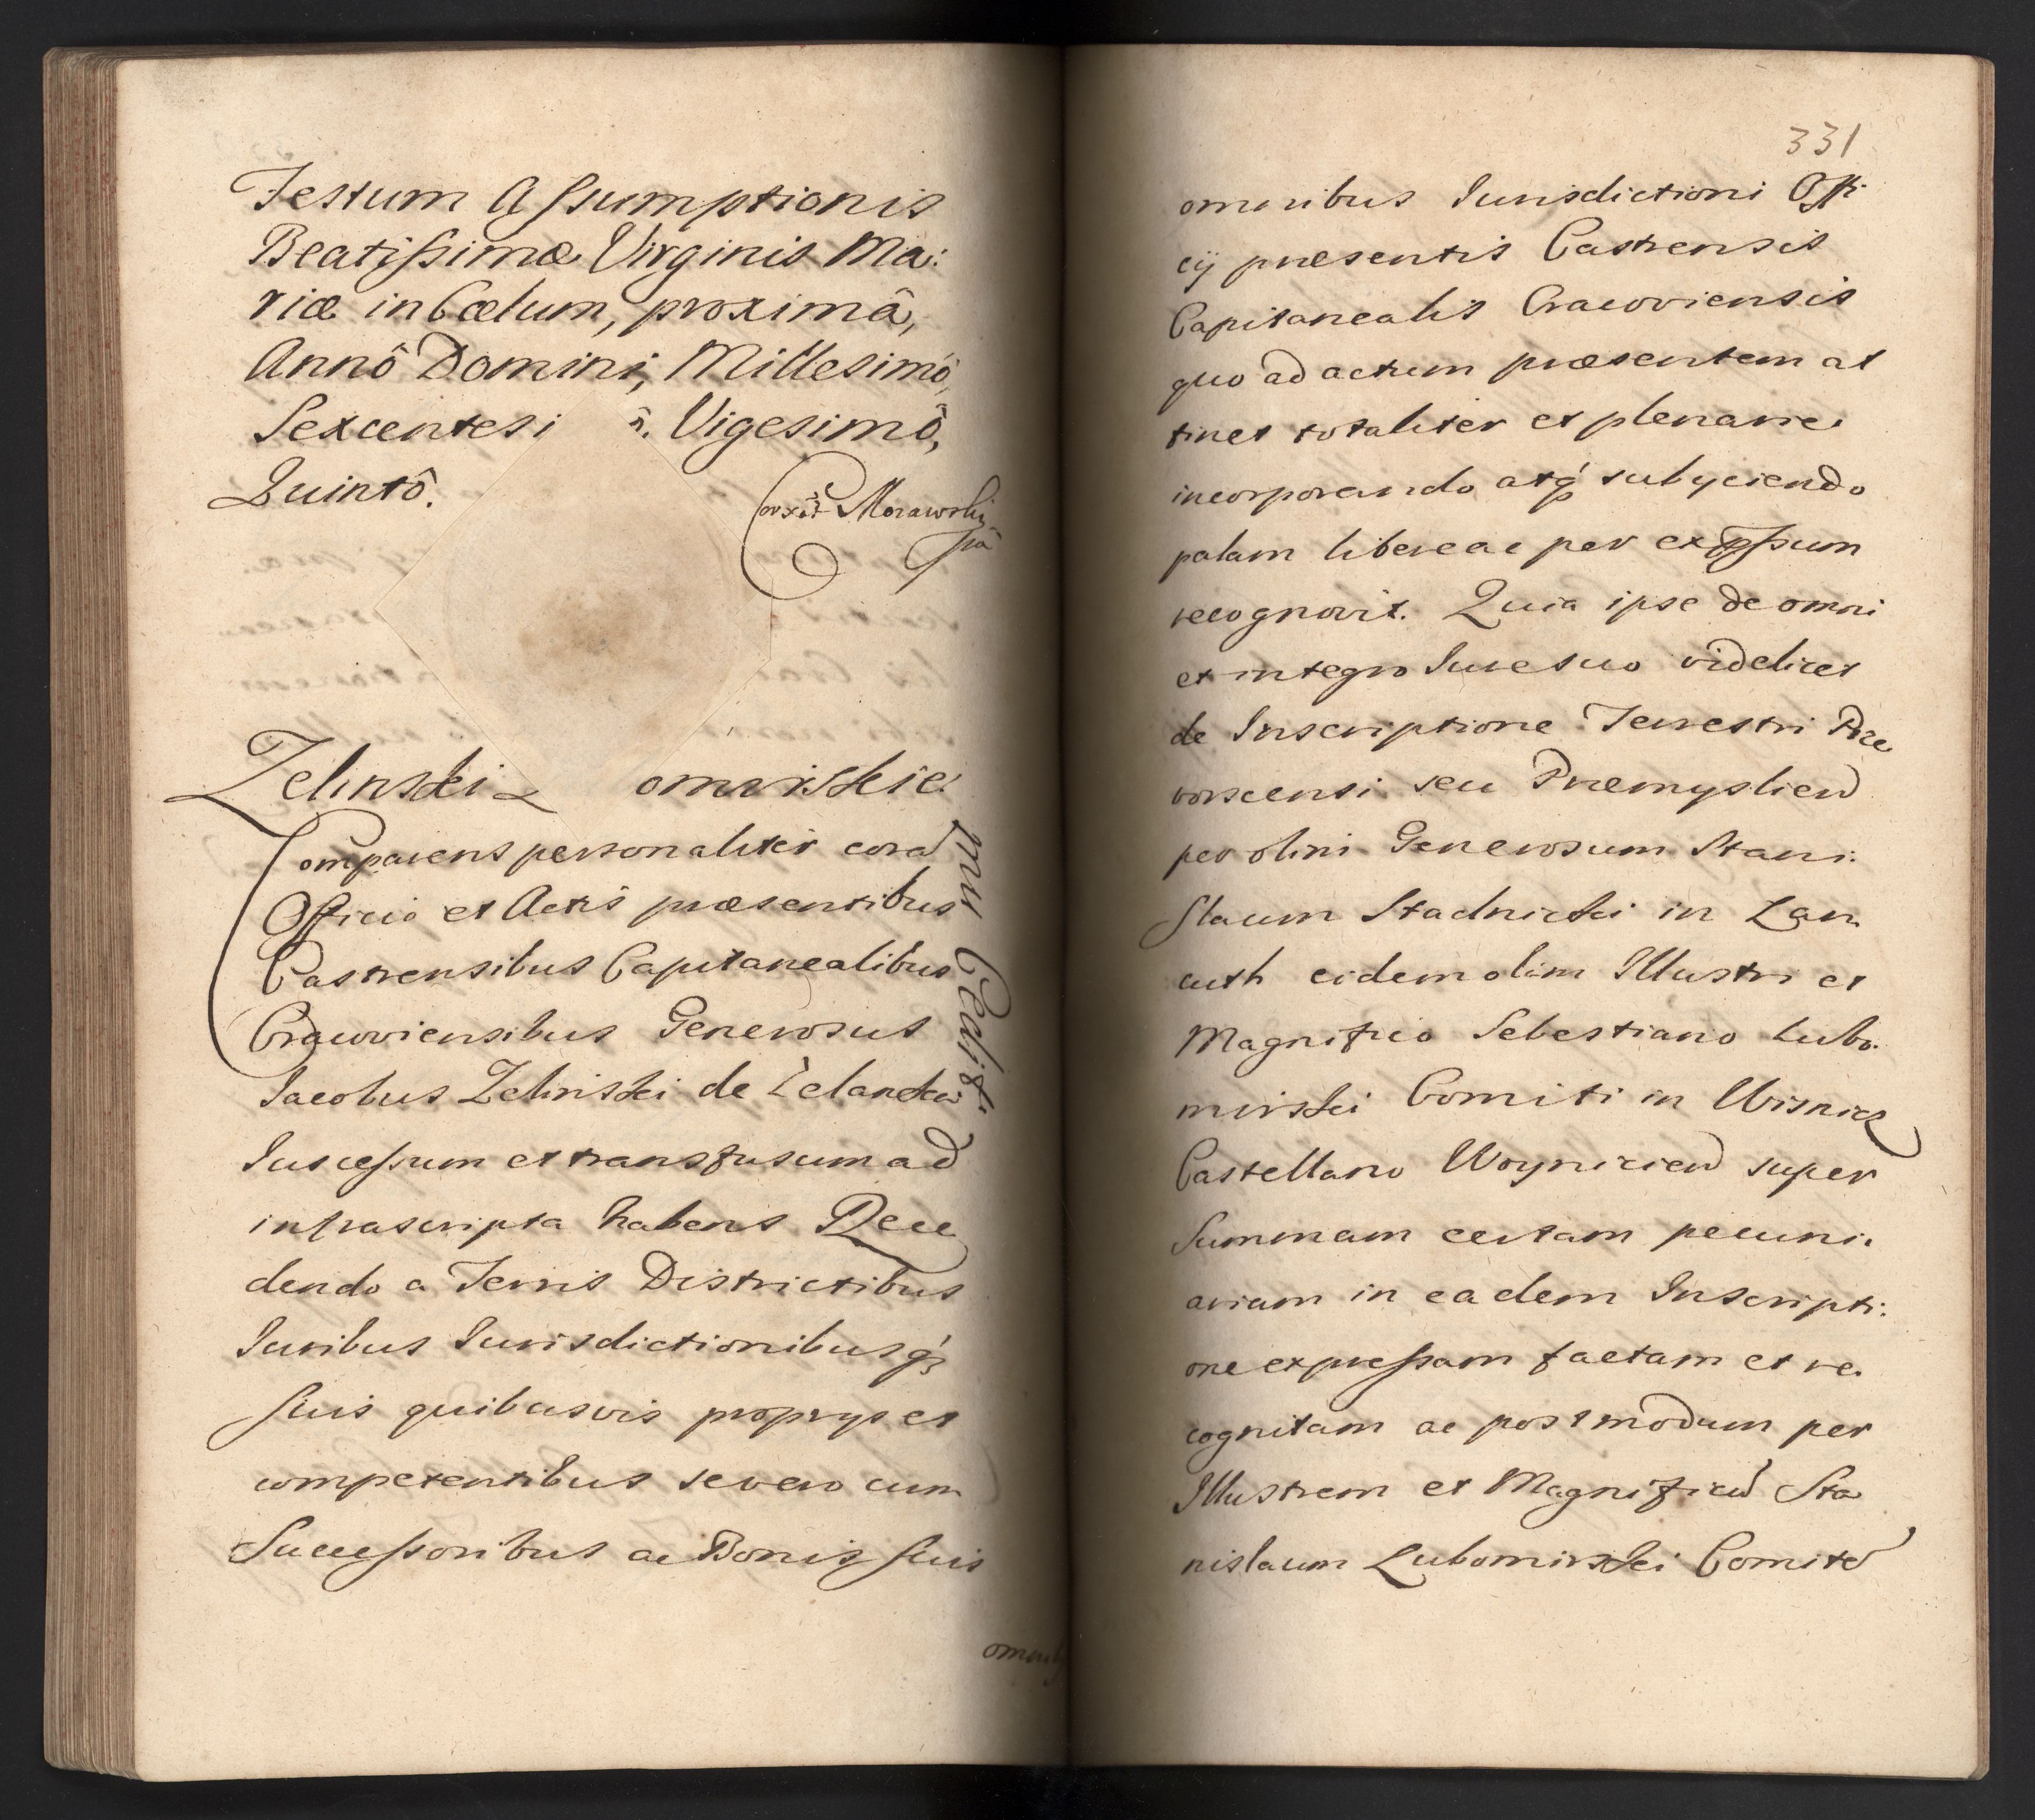 Festum Assumptionis
Beatissimæ Virginis Ma:
riæ in Cœlum, proximâ,
Annô Domini, Millesimô,
Sexcentesi ô. Vigesimô,
Quintô.
Corxit Morawski
Zelinski omirskie
mu Cedit.
Comparens personaliter corã
Officio et Actis præsentibus
Castrensibus Capitanealibus
Cracoviensibus Generosus
Iacobus Zelinski de Zelanka
Ius cessum et transfusum ad
infrascripta habens Rece
dendo a Terris Districtibus
Iuribus Iurisdictionibusq;
suis quibusvis proprys et
competentibus se vero cum
Successoribus ac Bonis suis
omnib
331
omnibus Iurisdictioni Offi
cij præsentis Castrensis
Capitanealis Cracoviensis
quo ad actum præsentem at
tinet totaliter et plenarie
incorporando atq; subyciendo
palam libere ac per expssum
recognovit. Quia ipse de omni
et integro Iure suo videlicet
de Inscriptione Terrestri Prze
vorscensi seu Præmyslien̄
per olim Generosum Stani:
slaum Stadnicki in Lan
cuth eidem olim Illustri et
Magnifico Sebestiano Lubo.
mirski Comiti in Wisnicz
Castellano Woynicien̄ super
Summam certam pecuni.
ariam in eadem Inscripti:
one expressam factam et re.
cognitam ac postmodum per
Illustrem et Magnificũ Sta
nislaum Lubomirski Comitẽ